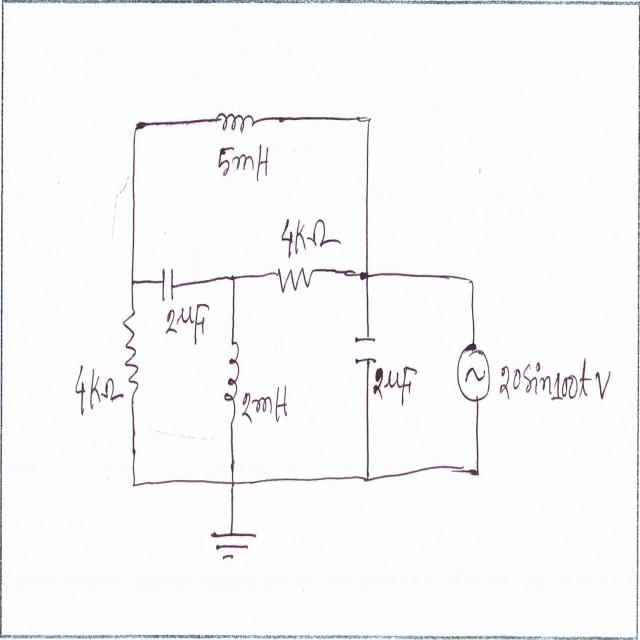 5mH
4KΩ
2μF
4KΩ
2mH
2μF
20sin100t V